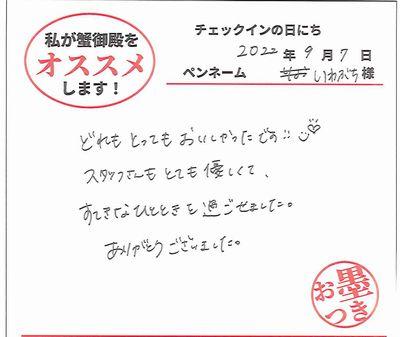 私が蟹御殿を
オススメ
します！
チェックインの日にち
2022年9月7日
ペンネーム いわぶち様
どれもとってもおいしかったです!!
スタッフさんもとても優しくて、
すてきなひとときを過ごせました。
ありがとうございました。
お墨
つき